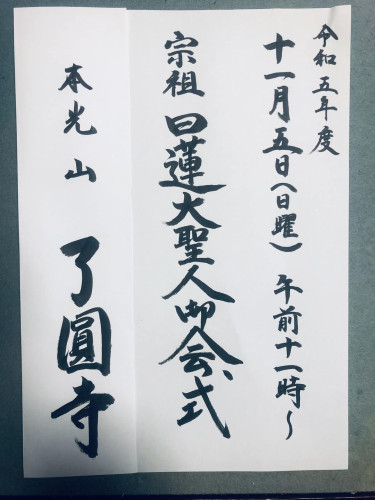 令和五年度
十一月五日(日曜)午前十一時〜
宗祖日蓮大聖人御会式
本光山 了圓寺